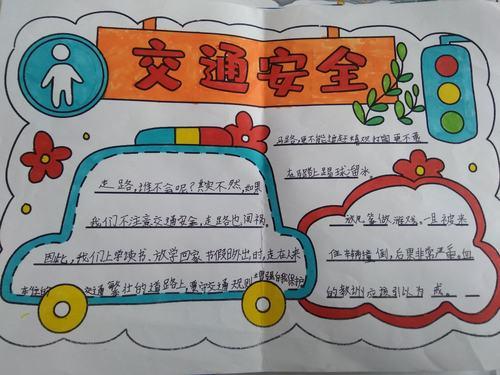 交通安全
走路，谁不会呢？其实不然，如果
我们不注意交通安全，走路也闯祸。
因此，我们上学读书、放学回家、节假日外出时，走在人来
车往的交通繁壮的道路上，遵守交通规则增强自我保护
马路，更不能追赶嬉戏打闹更不要
在马路上踢球溜冰
放风筝做游戏。一旦被来
往车辆撞倒，后果非常严重。血
的教训应该引以为戒。